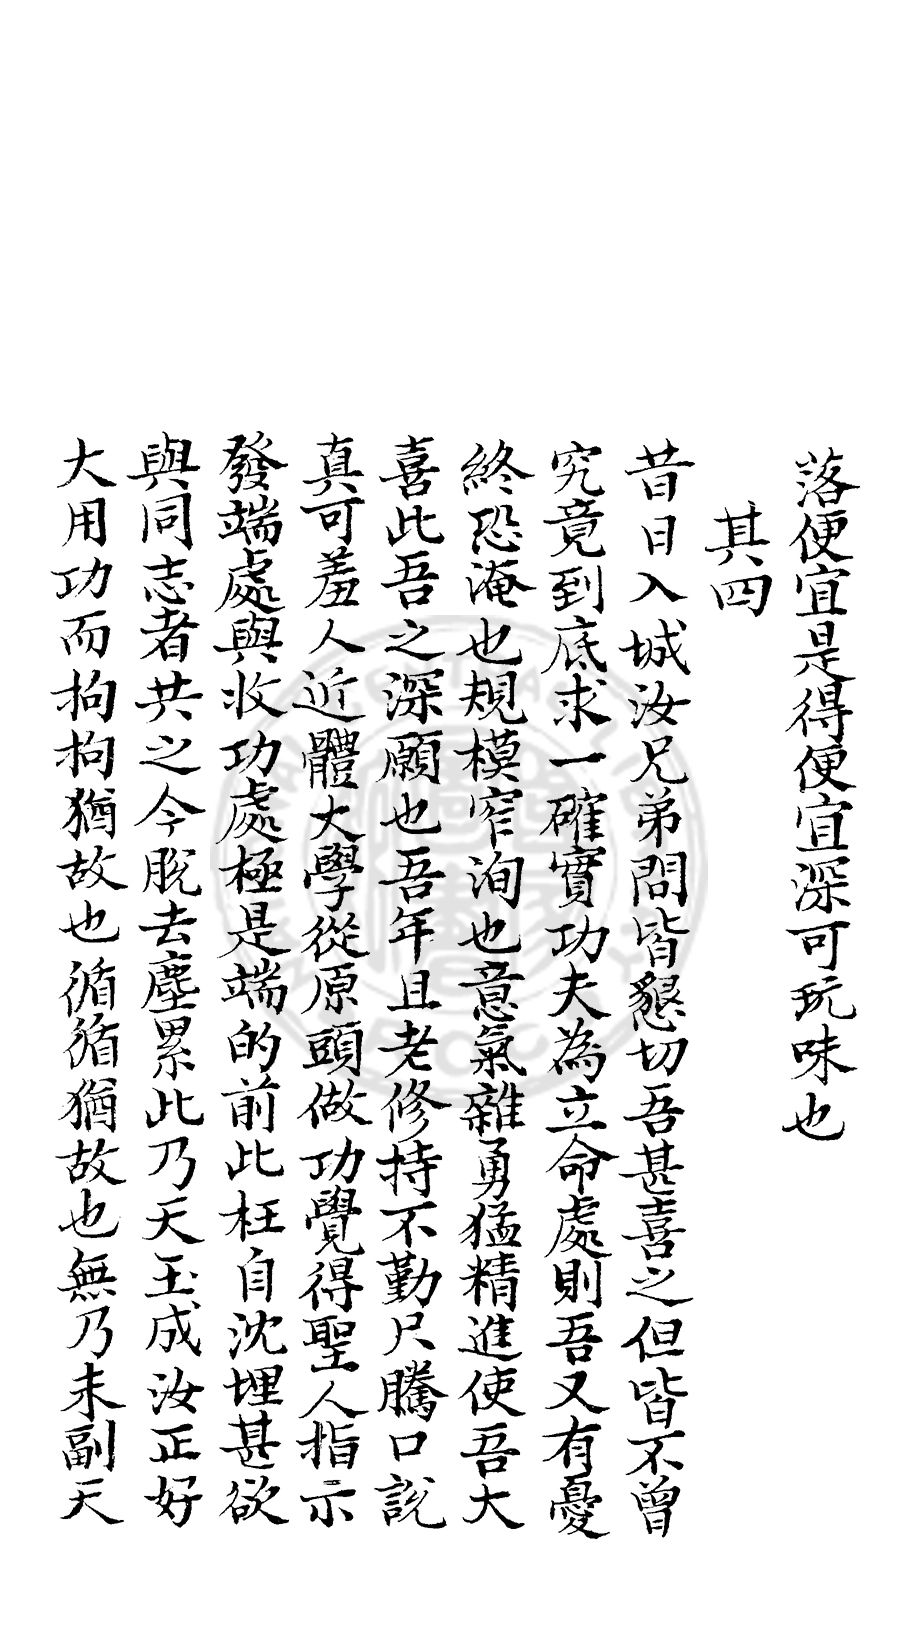 落便宜是得便宜深可玩味也
其四
昔日入城汝兄弟問皆懇切吾甚喜之但皆不曾
究竟到底求一確實功夫為立命處則吾又有憂
終恐淹也規模窄洵也意氣雜勇猛精進使吾大
喜此吾之深願也吾年且老修持不勤尺騰口說
真可羞人近體大學從原頭做功覺得聖人指示
發端處與收功處極是端的前此枉自沈埋甚欲
與同志者共之今脫去塵累此乃天玉成汝正好
大用功而拘拘猶故也循循猶故也無乃未副天